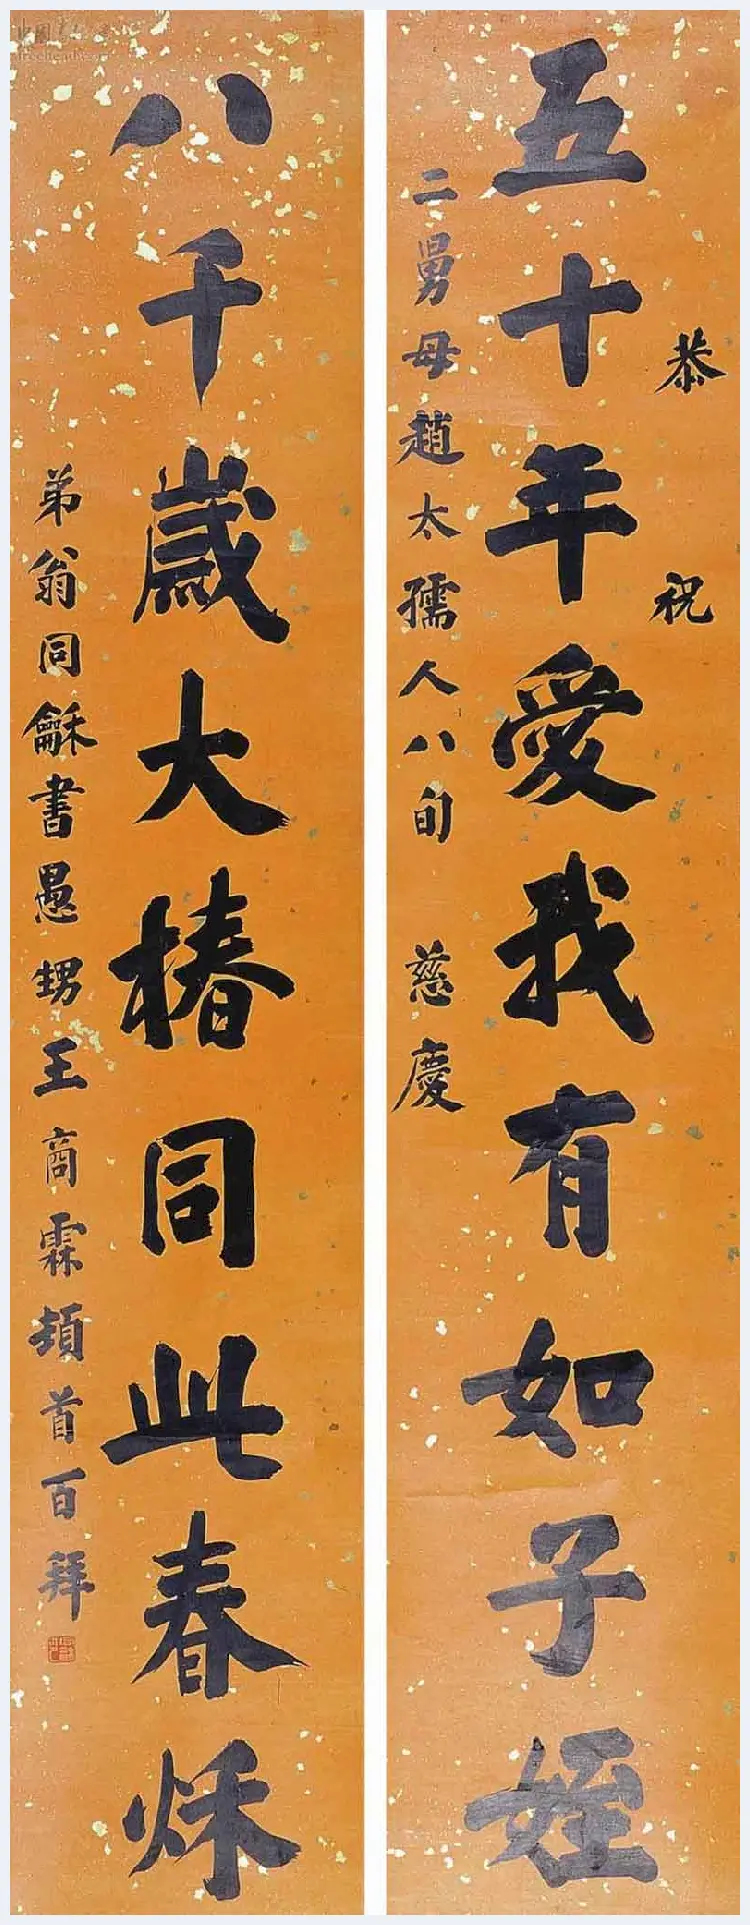 恭祝
五十年愛我有如子姪
二舅母趙太孺人八旬 慈慶
八千歲大椿同此春烁
弟翁同龢書愚甥王商霖頓首百拜